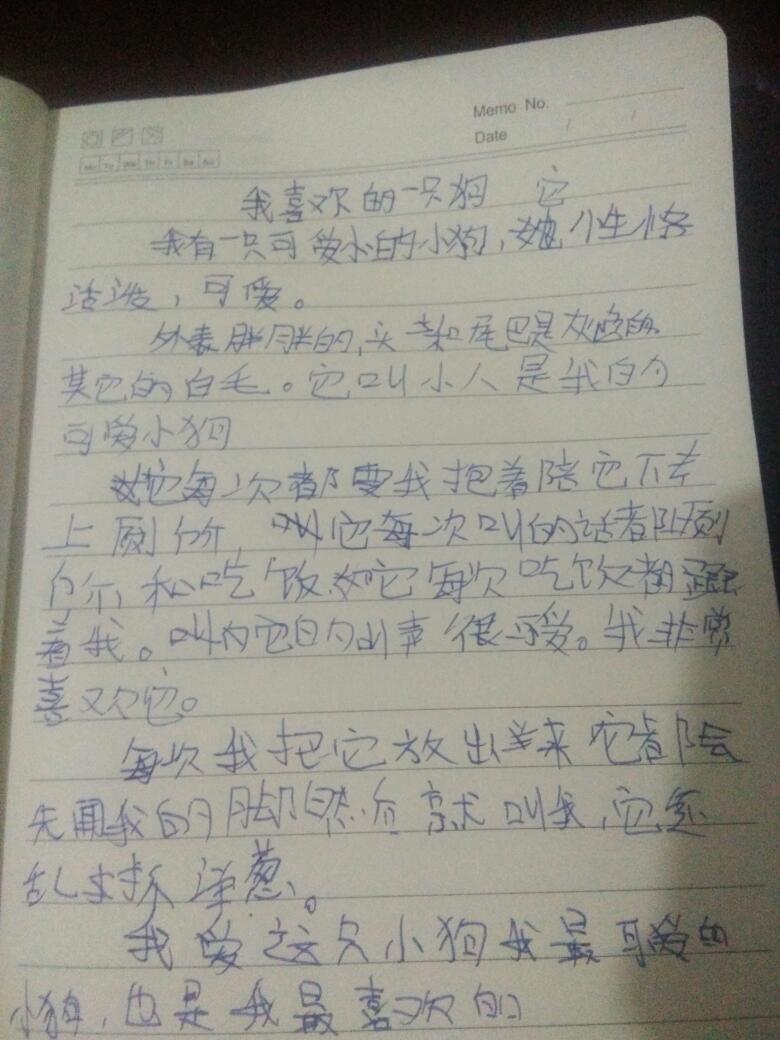 Memo No.
Date / /
Mo Tu We Th Fr Sa Su
我喜欢的一只狗 它
我有一只可爱的小狗，它个性格
活泼，可爱。
外表胖胖的，头和尾巴是灰色的
其它的白毛。它叫小人是我的
可爱小狗
它每次都要我抱着陪它下去
上厕所，叫它每次叫的话都队厕
所和吃饭，它每次吃饭都跟
着我。叫的它的叫声很可爱。我非常
喜欢它。
每次我把它放出来它都会
先闻我的脚然后就叫我，它
乱抓洋葱。
我爱这只小狗我最可爱的
小狗，也是我最喜欢的